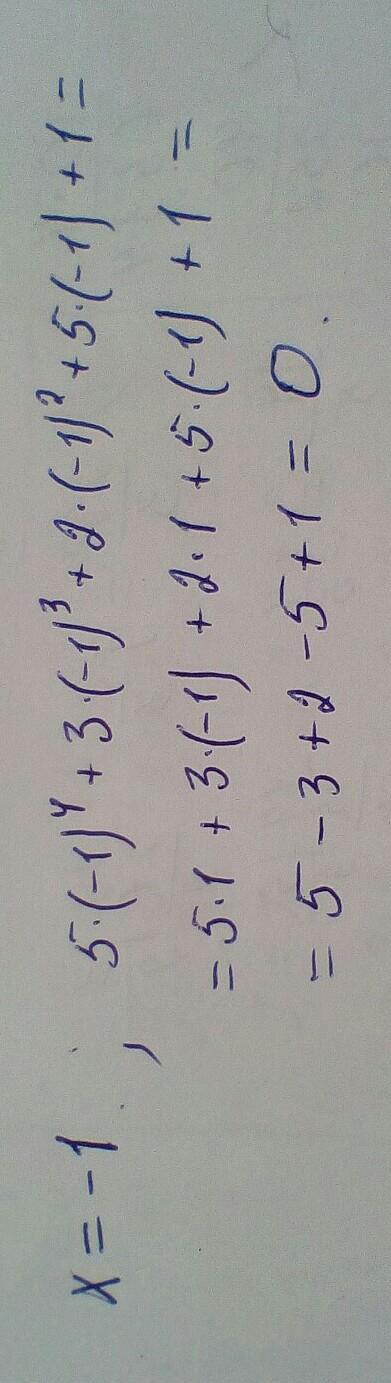 x = -1 ; 5·(-1)⁴ + 3·(-1)³ + 2·(-1)² + 5·(-1) + 1 =
= 5·1 + 3·(-1) + 2·1 + 5·(-1) + 1 =
= 5 - 3 + 2 - 5 + 1 = 0.